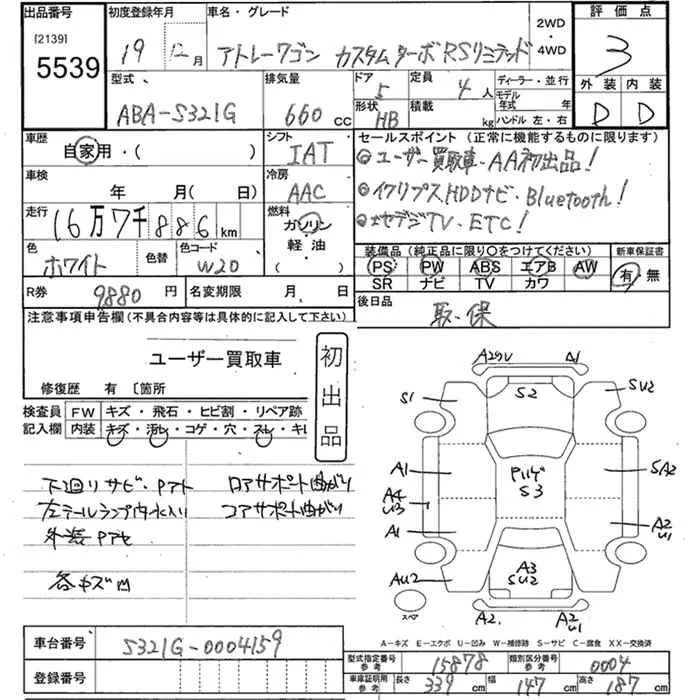 出品番号 初度登録年月 車名・グレード 2WD・4WD 評価点
[2139]
5539
19 12月 アトレーワゴン カスタムターボRSリミテッド 3
型式 排気量 ドア 定員 ディーラー・並行
ABA-S321G 660 cc 5 4人 モデル年式 年
形状 積載 kg ハンドル 左・右
HB
外装 内装
D D
車歴 シフト セールスポイント (正常に機能するものに限ります)
自家用・( ) IAT ◎ユーザー買取車・AA初出品!
車検 冷房
年 月(日) AAC ◎イクリプスHDDナビ・Bluetooth!
走行 燃料
16万7千886km ガソリン ◎地デジTV・ETC!
軽・油
( )
色 色替 色コード 装備品 (純正品に限り○をつけてください) 新車保証書
ホワイト W20 PS PW ABS エアB AW 有 無
SR ナビ TV カワ
R券 9880円 名変期限 月 日 後日品
取・保
注意事項申告欄(不具合内容等は具体的に記入して下さい)
ユーザー買取車
初出品
修復歴 有 〔箇所
検査員記入欄 FW キズ・飛石・ヒビ割・リペア跡
内装 キズ・汚レ・コゲ・穴・スレ・キレ
下廻りサビ・Pアト ロアサポート曲がり
左テールランプ内水入り コアサポート曲がり
外装Pアセ
各キズ凹
A29U A1
S1 S2 SU2
A1 Pハゲ S3 SA2
A4
U3
A1 A2
U1
AU2 A3
SU2
スペア A2 A2
U1
A-キズ E-エクボ U-凹み W-補修跡 S-サビ C-腐食 XX-交換済
車台番号 S321G-0004159
登録番号
型式指定番号 参考 15878 類別区分番号 参考 0004
車庫証明用 参考 長さ 339cm 幅 147cm 高さ 187cm